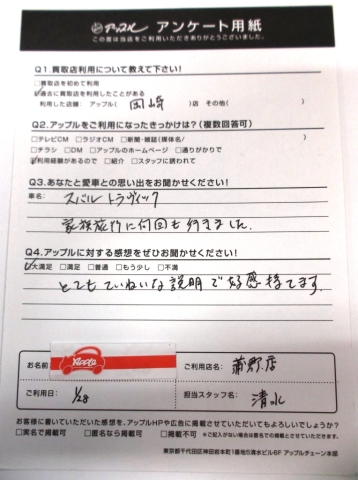 アップル アンケート用紙
この度は当店をご利用いただきありがとうございました。
Q1.買取店利用について教えて下さい!
□買取店を初めて利用
☑過去に買取店を利用したことがある
利用した店舗: アップル( 岡崎 )店 その他( )
Q2.アップルをご利用になったきっかけは?(複数回答可)
□テレビCM □ラジオCM □新聞・雑誌(媒体名/ )
□チラシ □DM □アップルのホームページ □通りがかりで
☑利用経験があるので □紹介 □スタッフに誘われて
Q3.あなたと愛車との思い出をお聞かせください!
車名: スバル トラヴィック
家族旅行に何回も行きました.
Q4.アップルに対する感想をぜひお聞かせください!
☑大満足 □満足 □普通 □もう少し □不満
とてもていねいな説明で好感持てます.
お名前 Apple
ご利用店名: 蒲郡店
ご利用日: 1/28
担当スタッフ名: 清水
お客様に書いていただいた感想を、アップルHPや広告に掲載させていただいてもよろしいでしょうか?
□実名で掲載可 □匿名なら掲載可 □掲載不可 ※ご記入がない場合は匿名での掲載とさせていただきます。
東京都千代田区神田岩本町1番地5清水ビル6F アップルチェーン本部